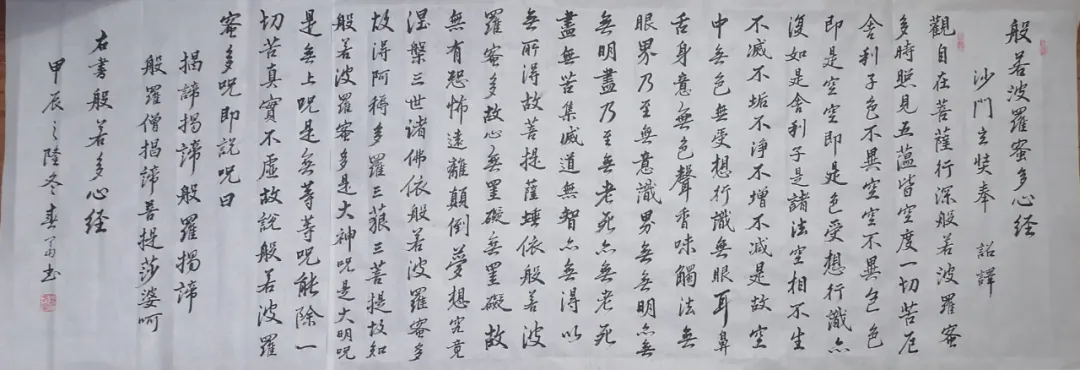 般若波羅蜜多心経
沙門玄奘奉 詔譯
觀自在菩薩行深般若波羅蜜
多時照見五蕴皆空度一切苦厄
舍利子色不異空空不異色色
即是空空即是色受想行識亦
復如是舍利子是諸法空相不生
不滅不垢不净不增不减是故空
中無色無受想行識無眼耳鼻
舌身意無色聲香味觸法無
眼界乃至無意識界無無明亦無
無明盡乃至無老死亦無老死
盡無苦集滅道無智亦無得以
無所得故菩提薩埵依般若波
羅蜜多故心無罣礙無罣礙故
無有恐怖遠離顛倒夢想究竟
涅槃三世諸佛依般若波羅蜜多
故得阿耨多羅三藐三菩提故知
般若波羅蜜多是大神呪是大明呪
是無上呪是無等等呪能除一
切苦真實不虛故說般若波羅
蜜多呪即說呪曰
揭諦揭諦般羅揭諦
般羅僧揭諦菩提莎婆呵
右書般若多心経
甲辰之隆冬春书